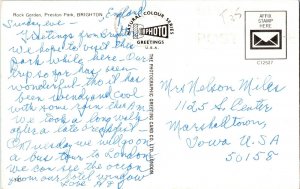 Rock Garden, Preston Park, BRIGHTON, England
Sunday eve –
Greetings from Brighton
We hope to visit this
Park while here. Our
Trip so far has been
wonderful tho it has
been windy and cool
with some rain
We took a long walk
after a late breakfast
On Tuesday we will go on
a bus tour to London
We can see the ocean
from our hotel window
NATURAL COLOUR SERIES
PHOTO
GREETINGS
U.S.A.
THE PHOTOGRAPHIC GREETING CARD CO. LTD., LONDON
AFFIX
STAMP
HERE
C12527
Mrs Nelson Miles
1125 S. Center
Marshalltown,
Iowa U.S.A
50158